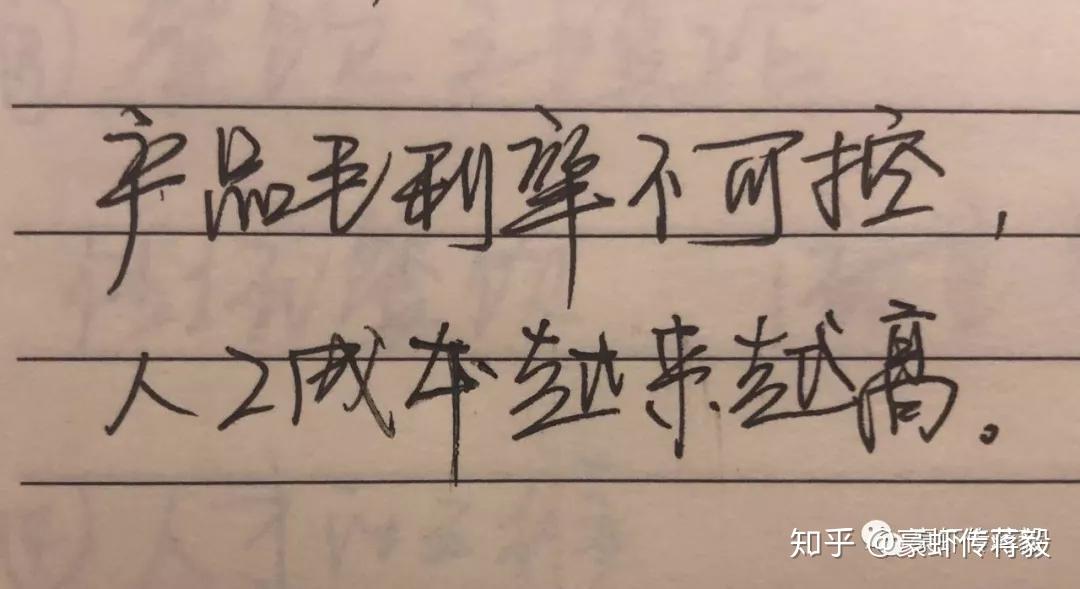 产品毛利率不可控，
人工成本越来越高。
知乎 @豪虾传蒋毅